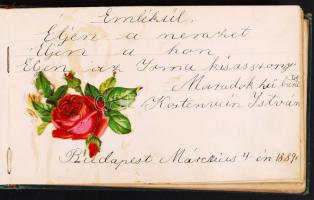 Emlékül.
Éljen a nemzet
Éljen a hon
Éljen az Irma kisasszony
Maradok hű
Kestenvein István
Budapest Március 4 én 1889.